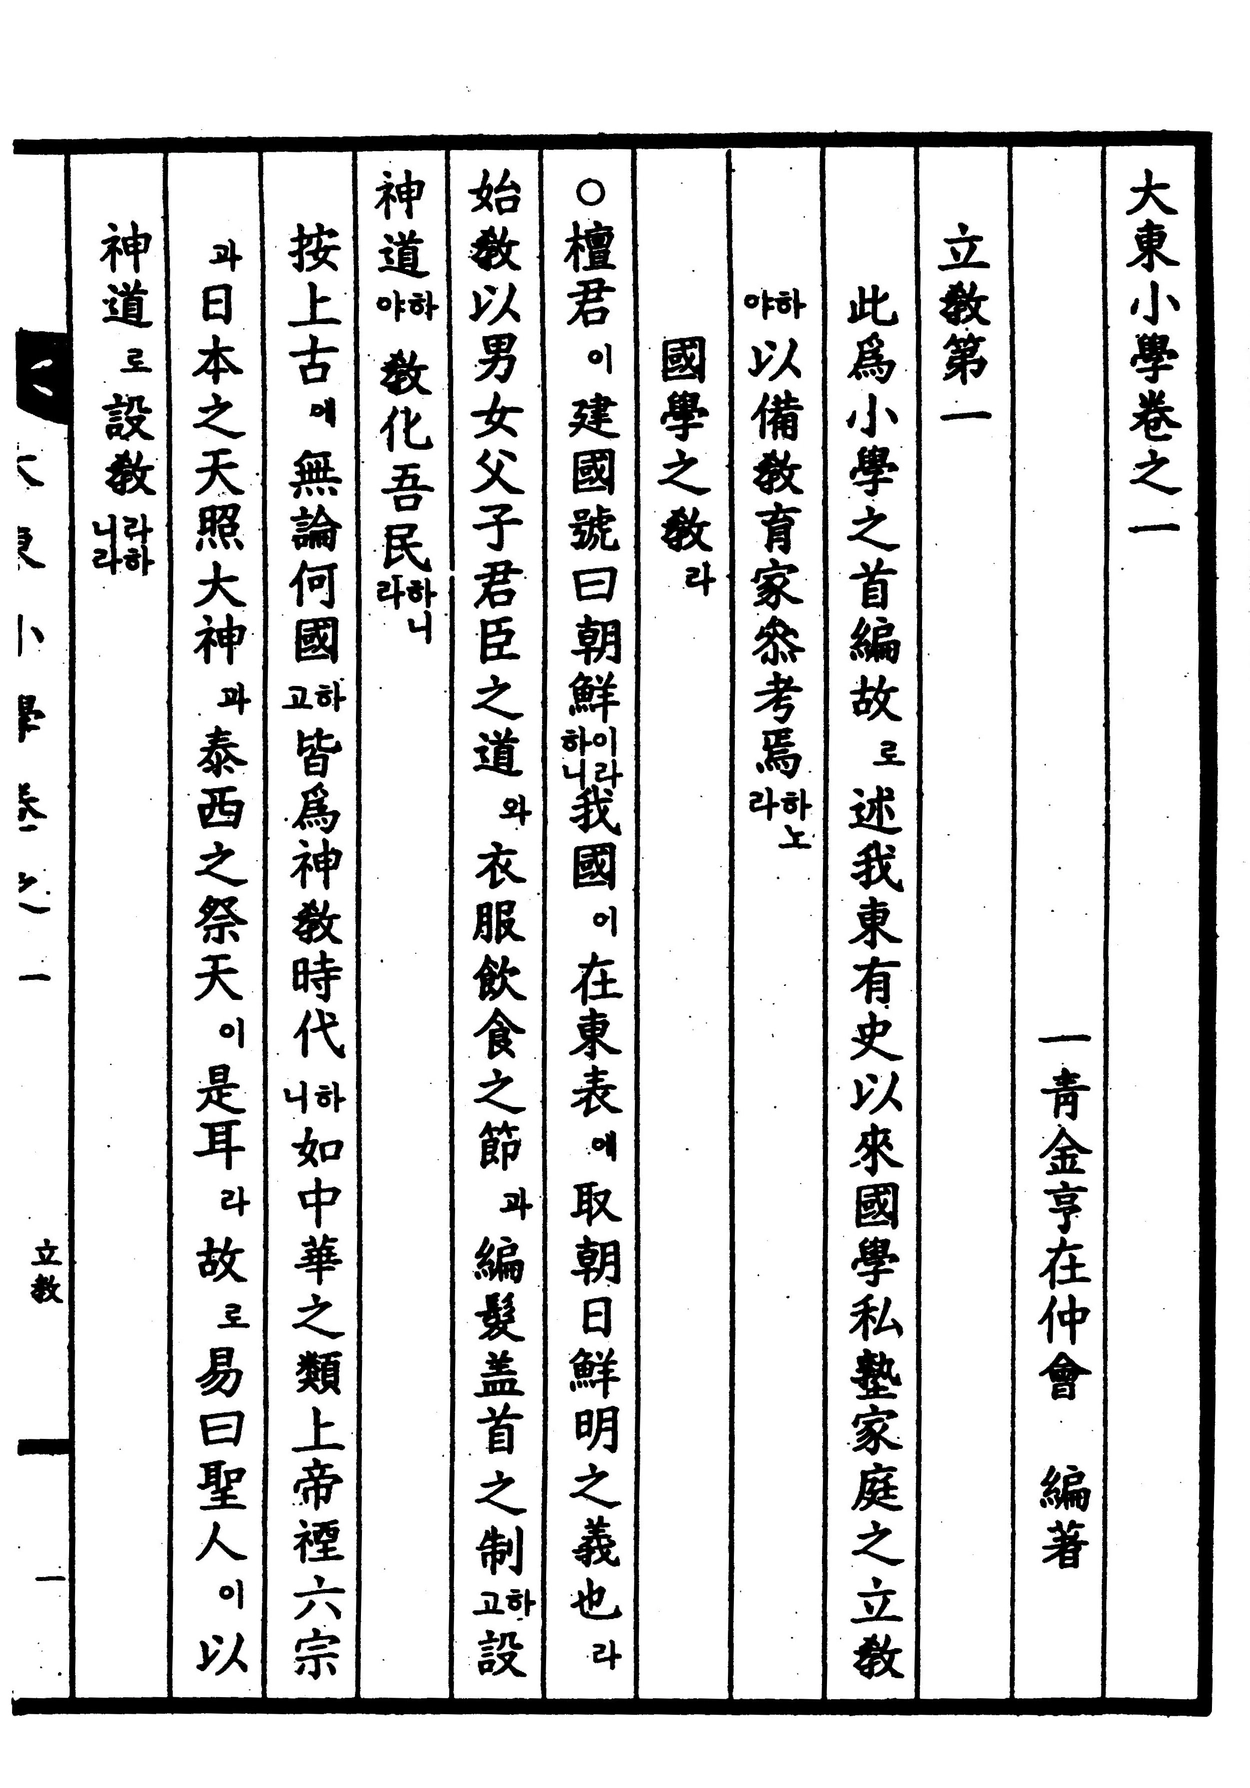 大東小學卷之一
一青金亨在仲會 編著
立敎第一
此爲小學之首編故로述我東有史以來國學私塾家庭之立敎
하야以備敎育家叅考焉하노라
國學之敎라
○檀君이建國號曰朝鮮이라하니我國이在東表에取朝日鮮明之義也라
始敎以男女父子君臣之道와衣服飮食之節과編髮盖首之制하고設
神道하야敎化吾民하니라
按上古에無論何國하고皆爲神敎時代하니如中華之類上帝禋六宗
과日本之天照大神과泰西之祭天이是耳라故로易曰聖人이以
神道로設敎라하니라
大東小學卷之一
立敎
一